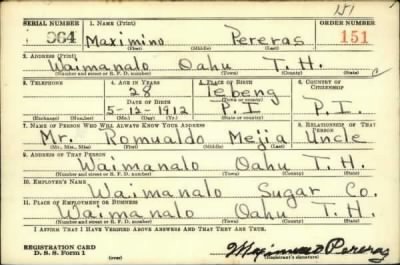 151
SERIAL NUMBER 1. NAME (Print) ORDER NUMBER
364 Maximino Pereras 151
(First) (Middle) (Last)
2. ADDRESS (Print)
Waimanalo Oahu T.H.
(Number and street or R. F. D. number) (Town) (County) (State)
3. TELEPHONE 4. AGE IN YEARS 5. PLACE OF BIRTH 6. COUNTRY OF CITIZENSHIP
28 Tebeng
DATE OF BIRTH (Town or county)
5-12-1912 P.I. P.I.
(Mo.) (Day) (Yr.) (State or country)
7. NAME OF PERSON WHO WILL ALWAYS KNOW YOUR ADDRESS 8. RELATIONSHIP OF THAT PERSON
Mr. Romualdo Mejia Uncle
(Mr., Mrs., Miss) (First) (Middle) (Last)
9. ADDRESS OF THAT PERSON
Waimanalo Oahu T.H.
(Number and street or R. F. D. number) (Town) (County) (State)
10. EMPLOYER'S NAME
Waimanalo Sugar Co.
11. PLACE OF EMPLOYMENT OR BUSINESS
Waimanalo Oahu T.H.
(Number and street or R. F. D. number) (Town) (County) (State)
I AFFIRM THAT I HAVE VERIFIED ABOVE ANSWERS AND THAT THEY ARE TRUE.
REGISTRATION CARD
D. S. S. Form 1 (over) Maximino Pereras
(Registrant's signature)